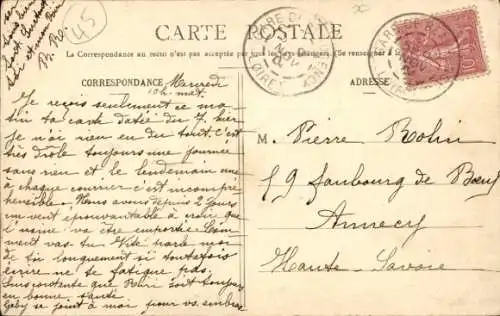 45
CARTE POSTALE
La Correspondance au recto n'est pas acceptée par tous les pays étrangers. (Se renseigner à la
CORRESPONDANCE
ADRESSE
Mercredi
10h mat.
Je reçois seulement ce ma-
tin ta carte datée du 7. hier
je n'ai rien eu du tout. C'est
très drôle toujours une journée
sans rien et le lendemain une
à chaque courrier c'est incompré
hensible. Nous avons depuis 2 jours
un vent épouvantable à croire que
l'usine va être emportée. Com-
ment vas-tu. Vite parle moi
de toi longuement si toutefois
écrire ne te fatigue pas.
Suis contente que soit toujours
en bonne santé.
Gaby se joint à moi pour vs. embras
M. Pierre Rolin
19 faubourg de Bœuf
Annecy
Haute-Savoie
LOIRET
10